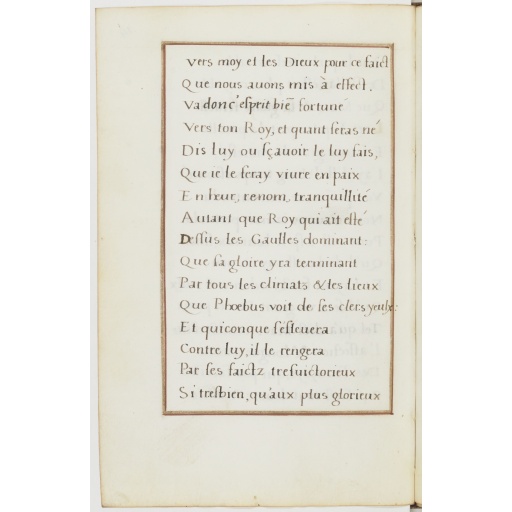 Vers moy et les Dieux pour ce faict
Que nous auons mis à effect.
Va donc' esprit biē fortuné
Vers ton Roy, et quant seras né
Dis luy ou sçauoir le luy fais,
Que ie le feray viure en paix
En heur, renom, tranquillité
Autant que Roy qui ait esté
Dessus les Gaulles dominant:
Que sa gloire yra terminant
Par tous les climats & les lieux
Que Phœbus voit de ses clers yeulx:
Et quiconque s'esleuera
Contre luy, il le rengera
Par ses faictz tresuictorieux
Si tresbien, qu'aux plus glorieux